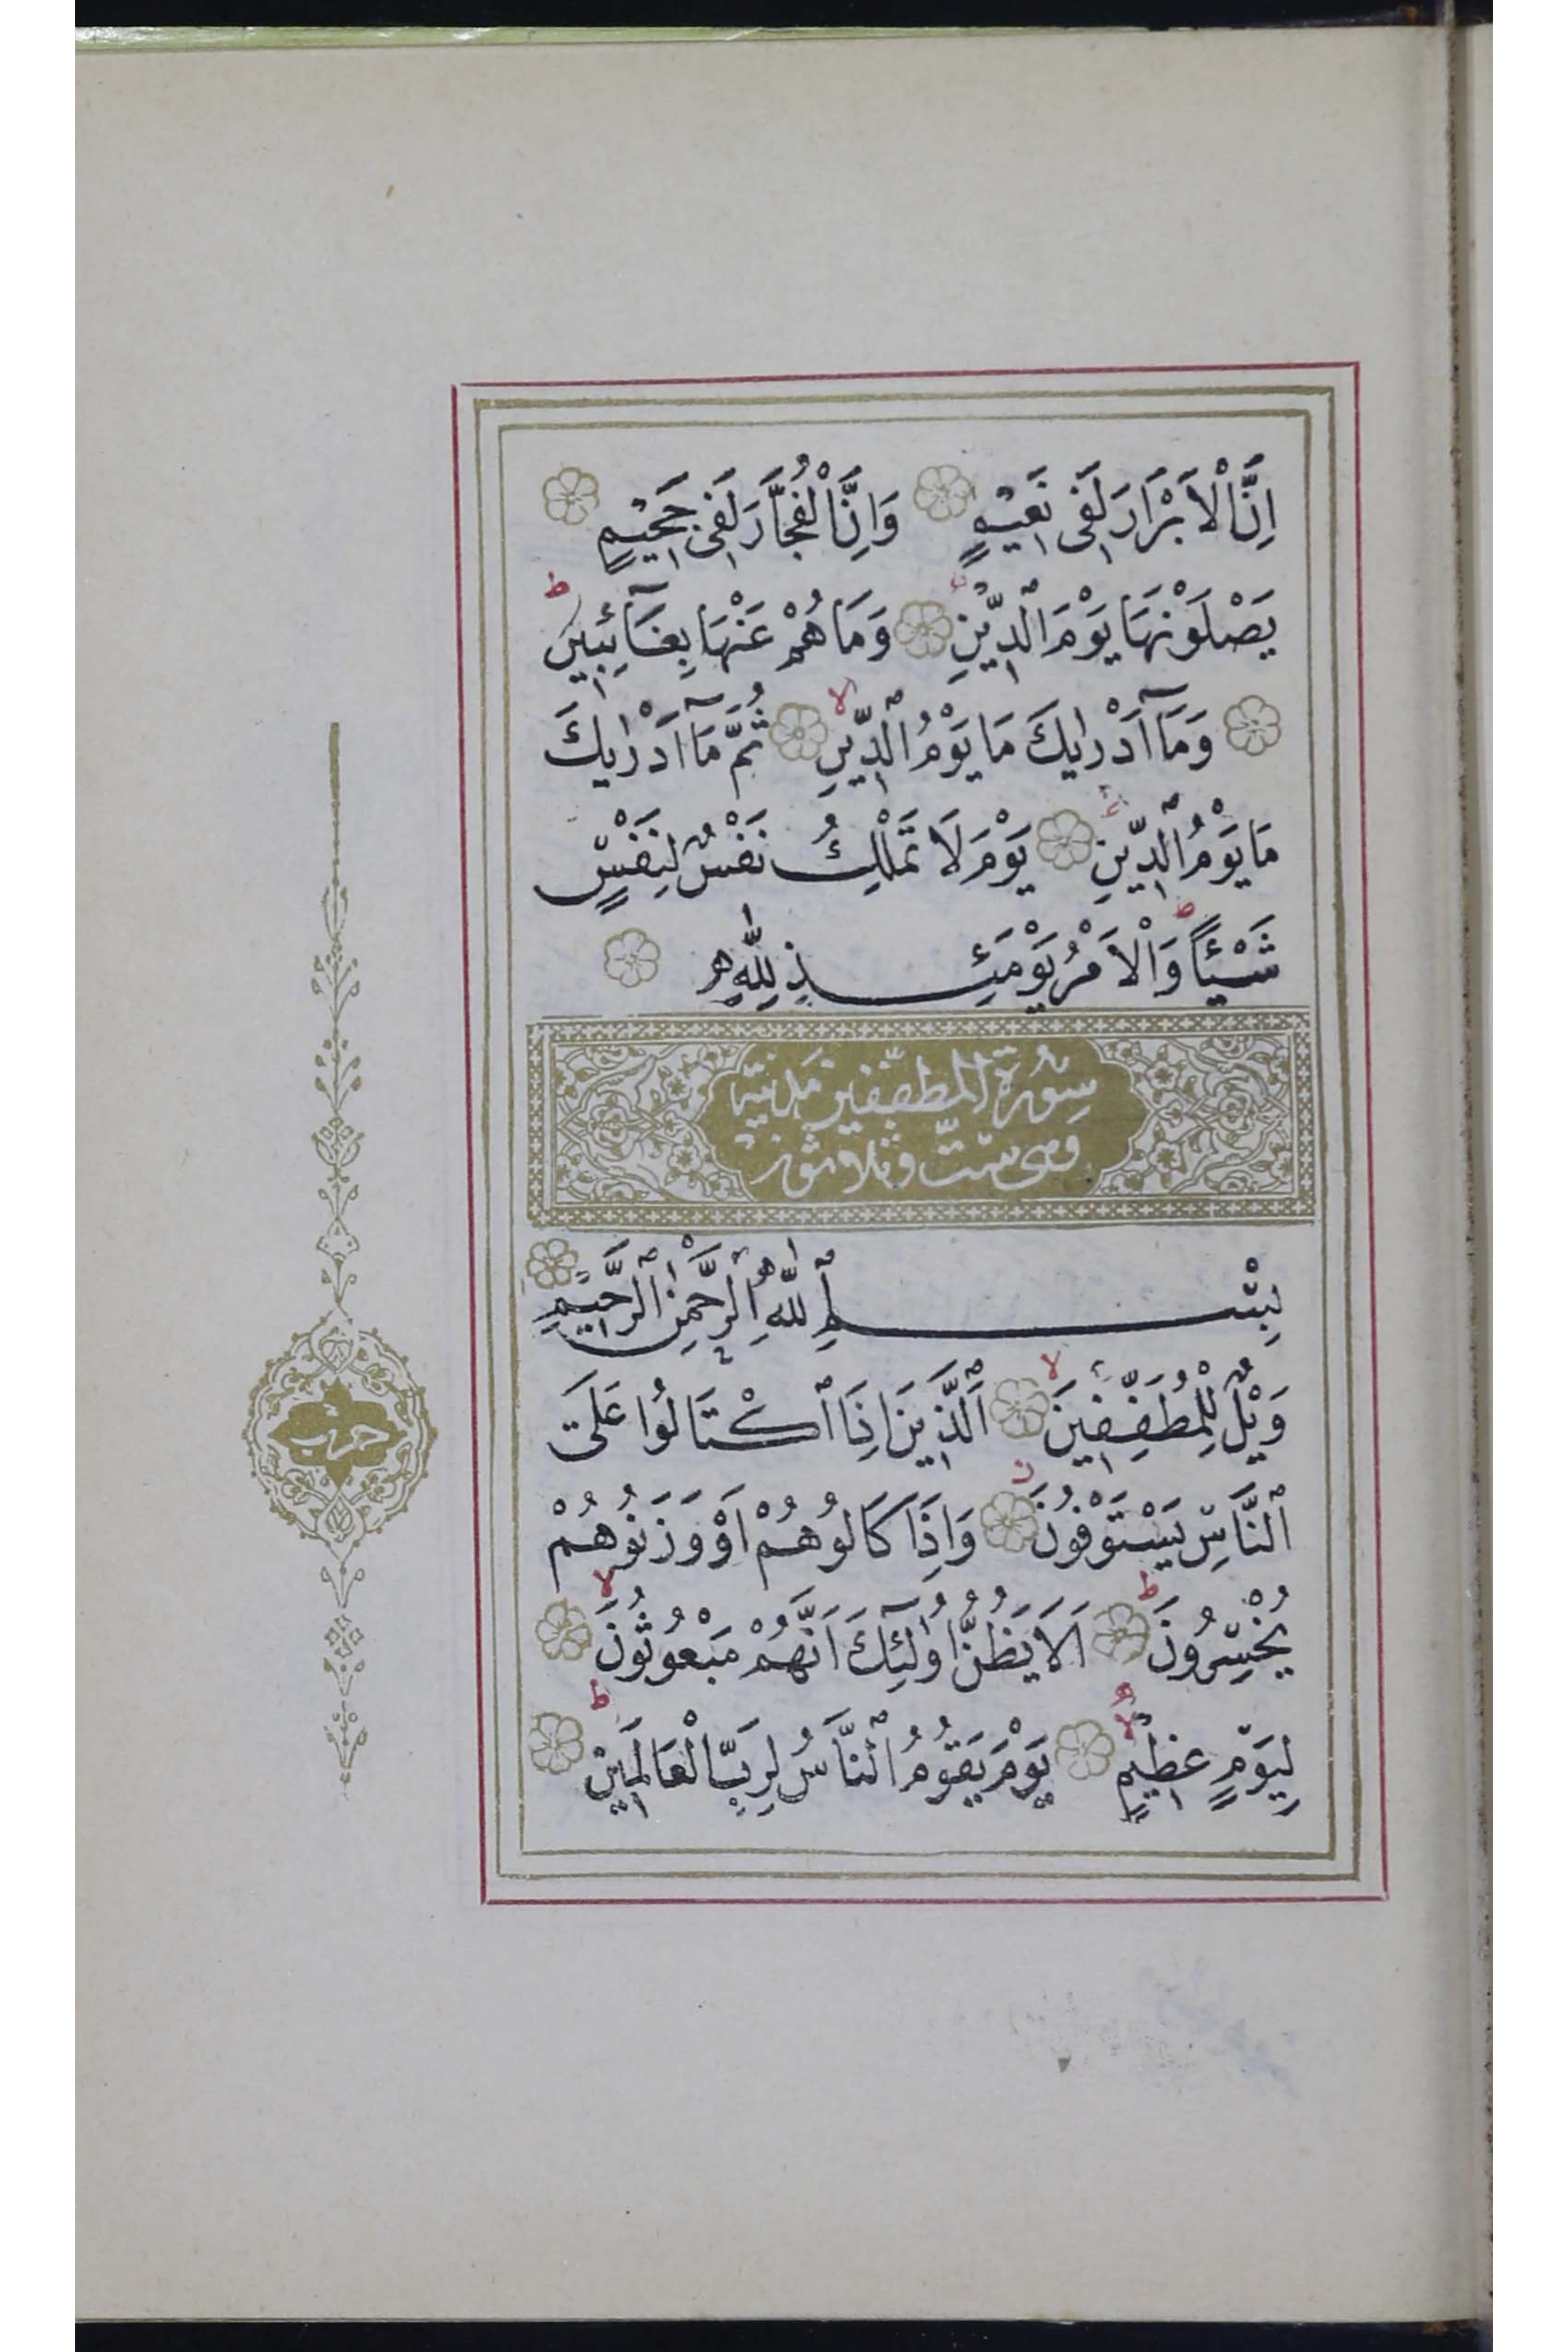 اِنَّ الْاَبْرَارَ لَفٖى نَعٖيمٍ وَاِنَّ الْفُجَّارَ لَفٖى جَحٖيمٍ
يَصْلَوْنَهَا يَوْمَ الدّٖينِ وَمَا هُمْ عَنْهَا بِغَٓائِبٖينَ ط
وَمَٓا اَدْرٰيكَ مَا يَوْمُ الدّٖينِ لا ثُمَّ مَٓا اَدْرٰيكَ
مَا يَوْمُ الدّٖينِ يَوْمَ لَا تَمْلِكُ نَفْسٌ لِنَفْسٍ
شَيْـًٔا ط وَالْاَمْرُ يَوْمَئِذٍ لِلّٰهِ
سورة المطففين مدنية
وهى ست وثلاثون
بِسْمِ اللّٰهِ الرَّحْمٰنِ الرَّحٖيمِ
وَيْلٌ لِلْمُطَفِّفٖينَ لا اَلَّذٖينَ اِذَا اكْتَالُوا عَلَى
حزب
النَّاسِ يَسْتَوْفُونَ ز وَاِذَا كَالُوهُمْ اَوْ وَزَنُوهُمْ
يُخْسِرُونَ ط اَلَا يَظُنُّ اُولٰٓئِكَ اَنَّهُمْ مَبْعُوثُونَ لا
لِيَوْمٍ عَظٖيمٍ لا يَوْمَ يَقُومُ النَّاسُ لِرَبِّ الْعَالَمٖينَ ط